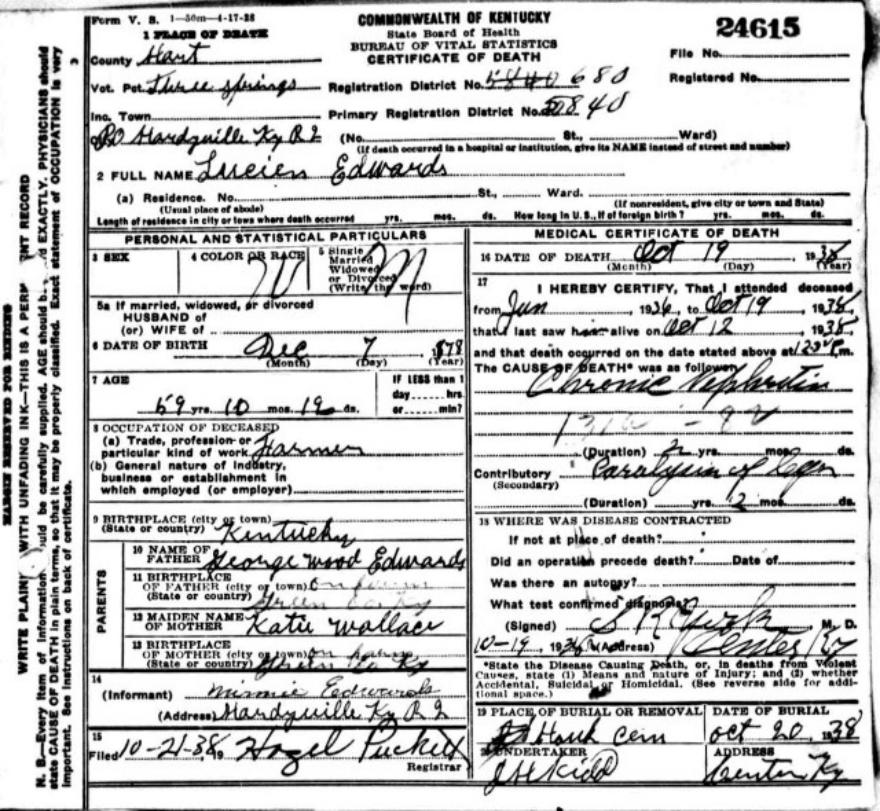 Form V. S. 1-50m-4-17-28
COMMONWEALTH OF KENTUCKY
State Board of Health
BUREAU OF VITAL STATISTICS
CERTIFICATE OF DEATH
24615
File No.
Registered No.
1 PLACE OF DEATH
County Hart
Vot. Pct. Three Springs
Registration District No. 5840 680
Inc. Town
Primary Registration District No. 5840
PO Hardyville Ky R 2 (No. St., Ward)
(If death occurred in a hospital or institution, give its NAME instead of street and number)
2 FULL NAME Lucien Edwards
(a) Residence. No. St., Ward.
(Usual place of abode) (If nonresident, give city or town and State)
Length of residence in city or town where death occurred yrs. mos. ds. How long in U. S., if of foreign birth? yrs. mos. ds.
PERSONAL AND STATISTICAL PARTICULARS
3 SEX
4 COLOR OR RACE W
5 Single
Married
Widowed
or Divorced
(Write the word) M
5a If married, widowed, or divorced
HUSBAND of
(or) WIFE of
6 DATE OF BIRTH Dec 7 1878
(Month) (Day) (Year)
7 AGE
59 yrs. 10 mos. 12 ds.
IF LESS than 1
day hrs.
or min?
8 OCCUPATION OF DECEASED
(a) Trade, profession or
particular kind of work Farmer
(b) General nature of industry,
business or establishment in
which employed (or employer)
9 BIRTHPLACE (city or town)
(State or country) Kentucky
PARENTS
10 NAME OF
FATHER George Wood Edwards
11 BIRTHPLACE
OF FATHER (city or town) on farm
(State or country) Green Co. Ky
12 MAIDEN NAME
OF MOTHER Katie Wallace
13 BIRTHPLACE
OF MOTHER (city or town) on farm
(State or country) Green Co Ky
14
(Informant) Minnie Edwards
(Address) Hardyville Ky R 2
15
Filed 10-21-38, 19 Hazel Puckett
Registrar
MEDICAL CERTIFICATE OF DEATH
16 DATE OF DEATH Oct 19 1938
(Month) (Day) (Year)
17
I HEREBY CERTIFY, That I attended deceased
from Jun, 1936, to Oct 19, 1938,
that I last saw h alive on Oct 12, 1938,
and that death occurred on the date stated above at m.
The CAUSE OF DEATH* was as follows:
Chronic Nephritis
(Duration) 2 yrs. mos. ds.
Contributory Paralysis of
(Secondary)
(Duration) yrs. 2 mos. ds.
18 WHERE WAS DISEASE CONTRACTED
If not at place of death?
Did an operation precede death? Date of
Was there an autopsy?
What test confirmed diagnosis?
(Signed) M. D.
10-19, 1938 (Address) Center Ky
*State the Disease Causing Death, or, in deaths from Violent
Causes, state (1) Means and nature of Injury; and (2) whether
Accidental, Suicidal or Homicidal. (See reverse side for addi-
tional space.)
19 PLACE OF BURIAL OR REMOVAL
Cem
DATE OF BURIAL
Oct 20, 1938
20 UNDERTAKER
J H Kidd
ADDRESS
Center Ky
MARGIN RESERVED FOR BINDING
WRITE PLAINLY WITH UNFADING INK—THIS IS A PERM NT RECORD
N. B.—Every item of information should be carefully supplied. AGE should b d EXACTLY. PHYSICIANS should
state CAUSE OF DEATH in plain terms, so that it may be properly classified. Exact statement of OCCUPATION is very
important. See instructions on back of certificate.